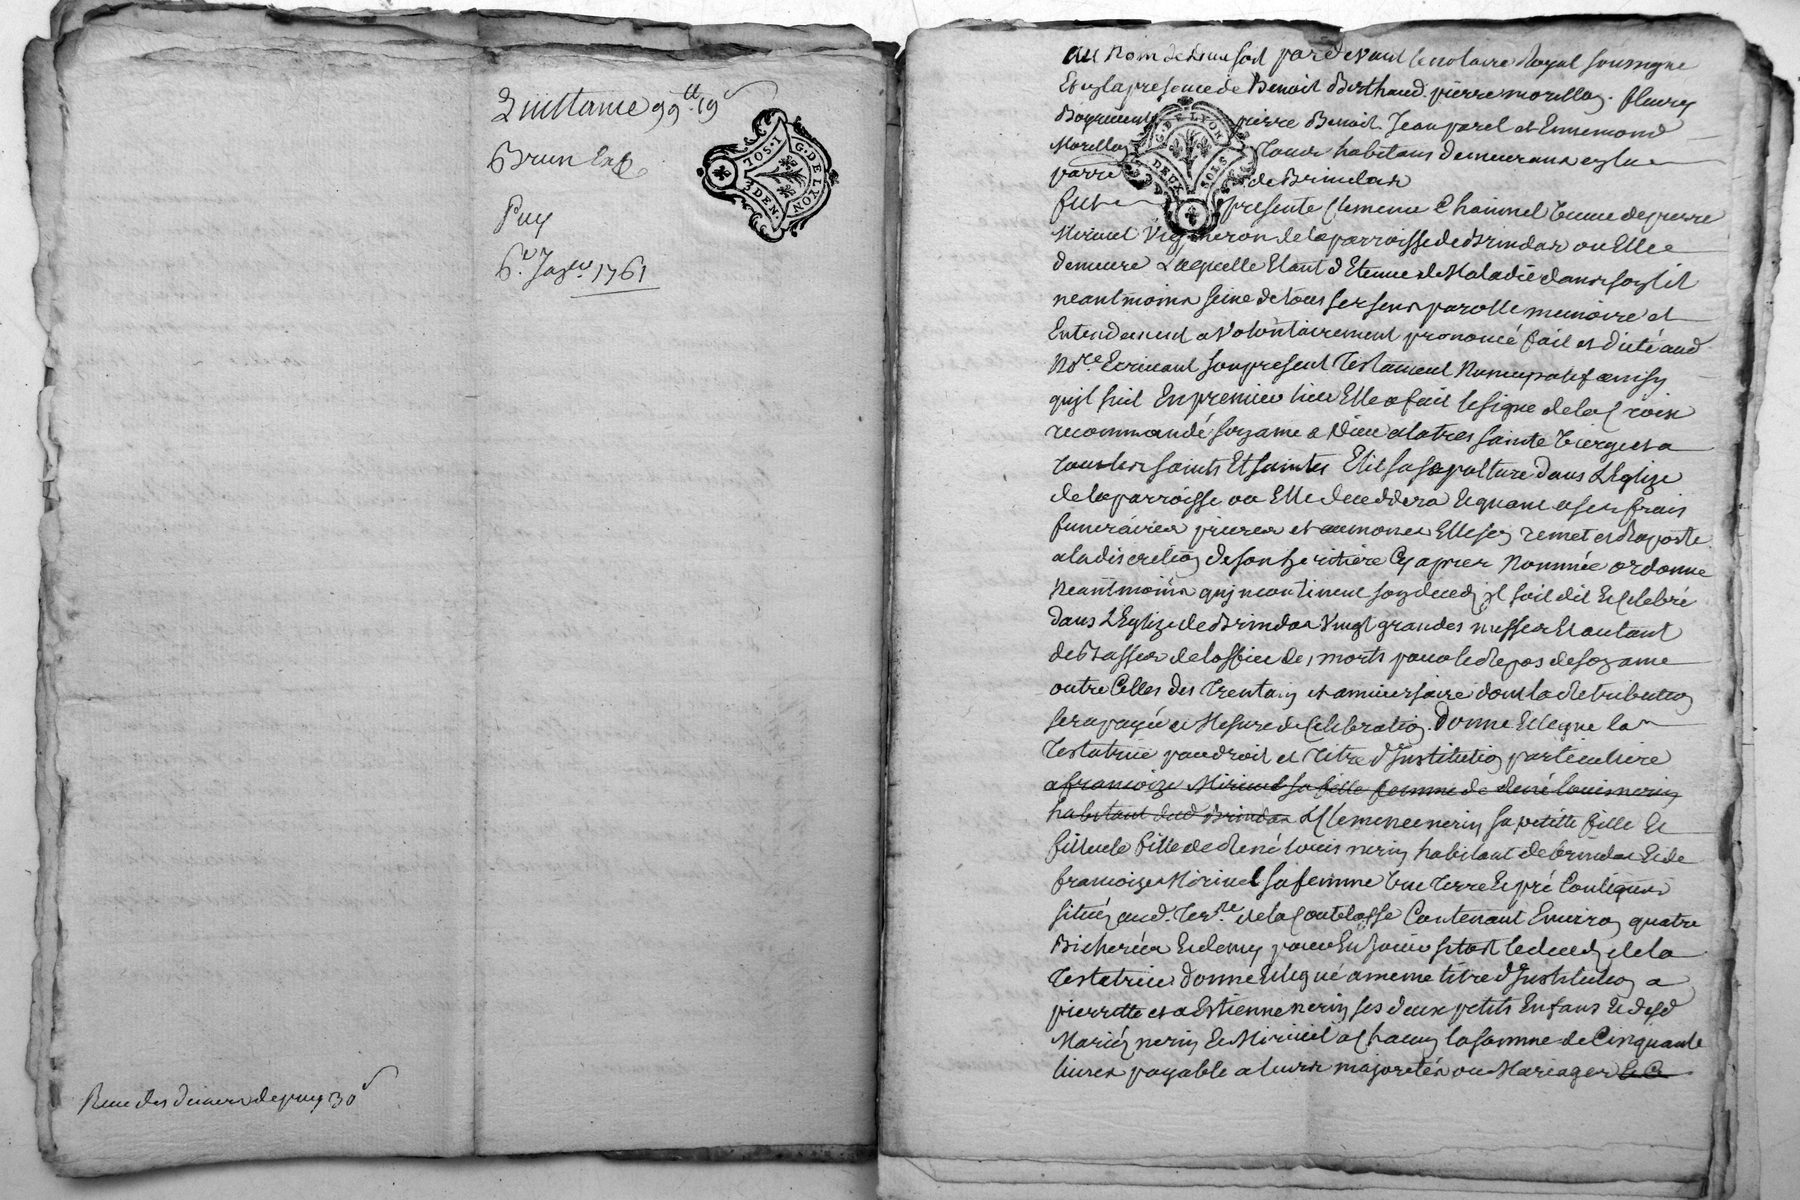 Quittance 99ᵗᵗ 19ˢ
Brun
Puy
6.ᵉ Janᵉʳ 1761
TOS·I
G·DE LYON
3 DEN.
Receu des deniers de puy 30ˢ
Au Nom de Dieu soit par devant le notaire Royal soussigne
Et en la presence de Benoit Berthaud. pierre morillon. fleury
pierre Benoit. Jean parel et Ennemond
Morillon Tous habitans demeurans en la
parre de Brindas
G·DE LYON
DEUX SOLS
fut presente Clemence Chaumel veuve de pierre
Miriuel Vigneron de la parroisse de Brindas ou Elle
demeure Laquelle Etant détenue de Maladie dans son lit
neantmoins seine de tous ses sens parolle memoire et
Entendement a Volontairement prononcé fait et dicté aud
No.ʳᵉ Ecrivant son present Testament Nuncupatif ainsy
quil suit En premier lieu Elle a fait le signe de la Croix
recommandé son ame a Dieu a la tres sainte Vierge et a
tous les saints Et saintes Elit sa sepulture dans L'Eglize
de la parroisse ou Elle deceddera Et quant a ses frais
funeraires prieres et aumones Elle sen remet et raporte
a la discretion de son heritiere Cy apres Nommée ordonne
Neantmoins quincontinent son deced il soit dit Et Celebré
dans L'Eglize de Brindas Vingt grandes messes Et autant
de Basses de loffice des morts pour le Repos de son ame
outre Celles des Trentain et anniversaire dont la Retribution
sera payée a Mesure de Celebration. Donne Et legue la
Testatrice par droit et titre d'Institution particuliere
a francoize Miriuel sa fille femme de René Louis nerin
habitant dud Brindas a Clemence nerin sa petitte fille Et
filleule fille de René Louis nerin habitant de brindas Et de
francoize Miriuel sa femme Une Terre Et pré Contigus
situés aud. Terr.ʳᵉ de la Coutelasse Contenant Environ quatre
Bicherées Et demy pour En Jouir sitost le deced de la
Testatrice donne Et legué a meme titre d'Institution a
pierrette et a Estienne nerin ses deux petits Enfans Et desd
Mariés nerin Et Miriuel a Chacun la somme de Cinquante
livres payable a leurs majorités ou Mariages Et C